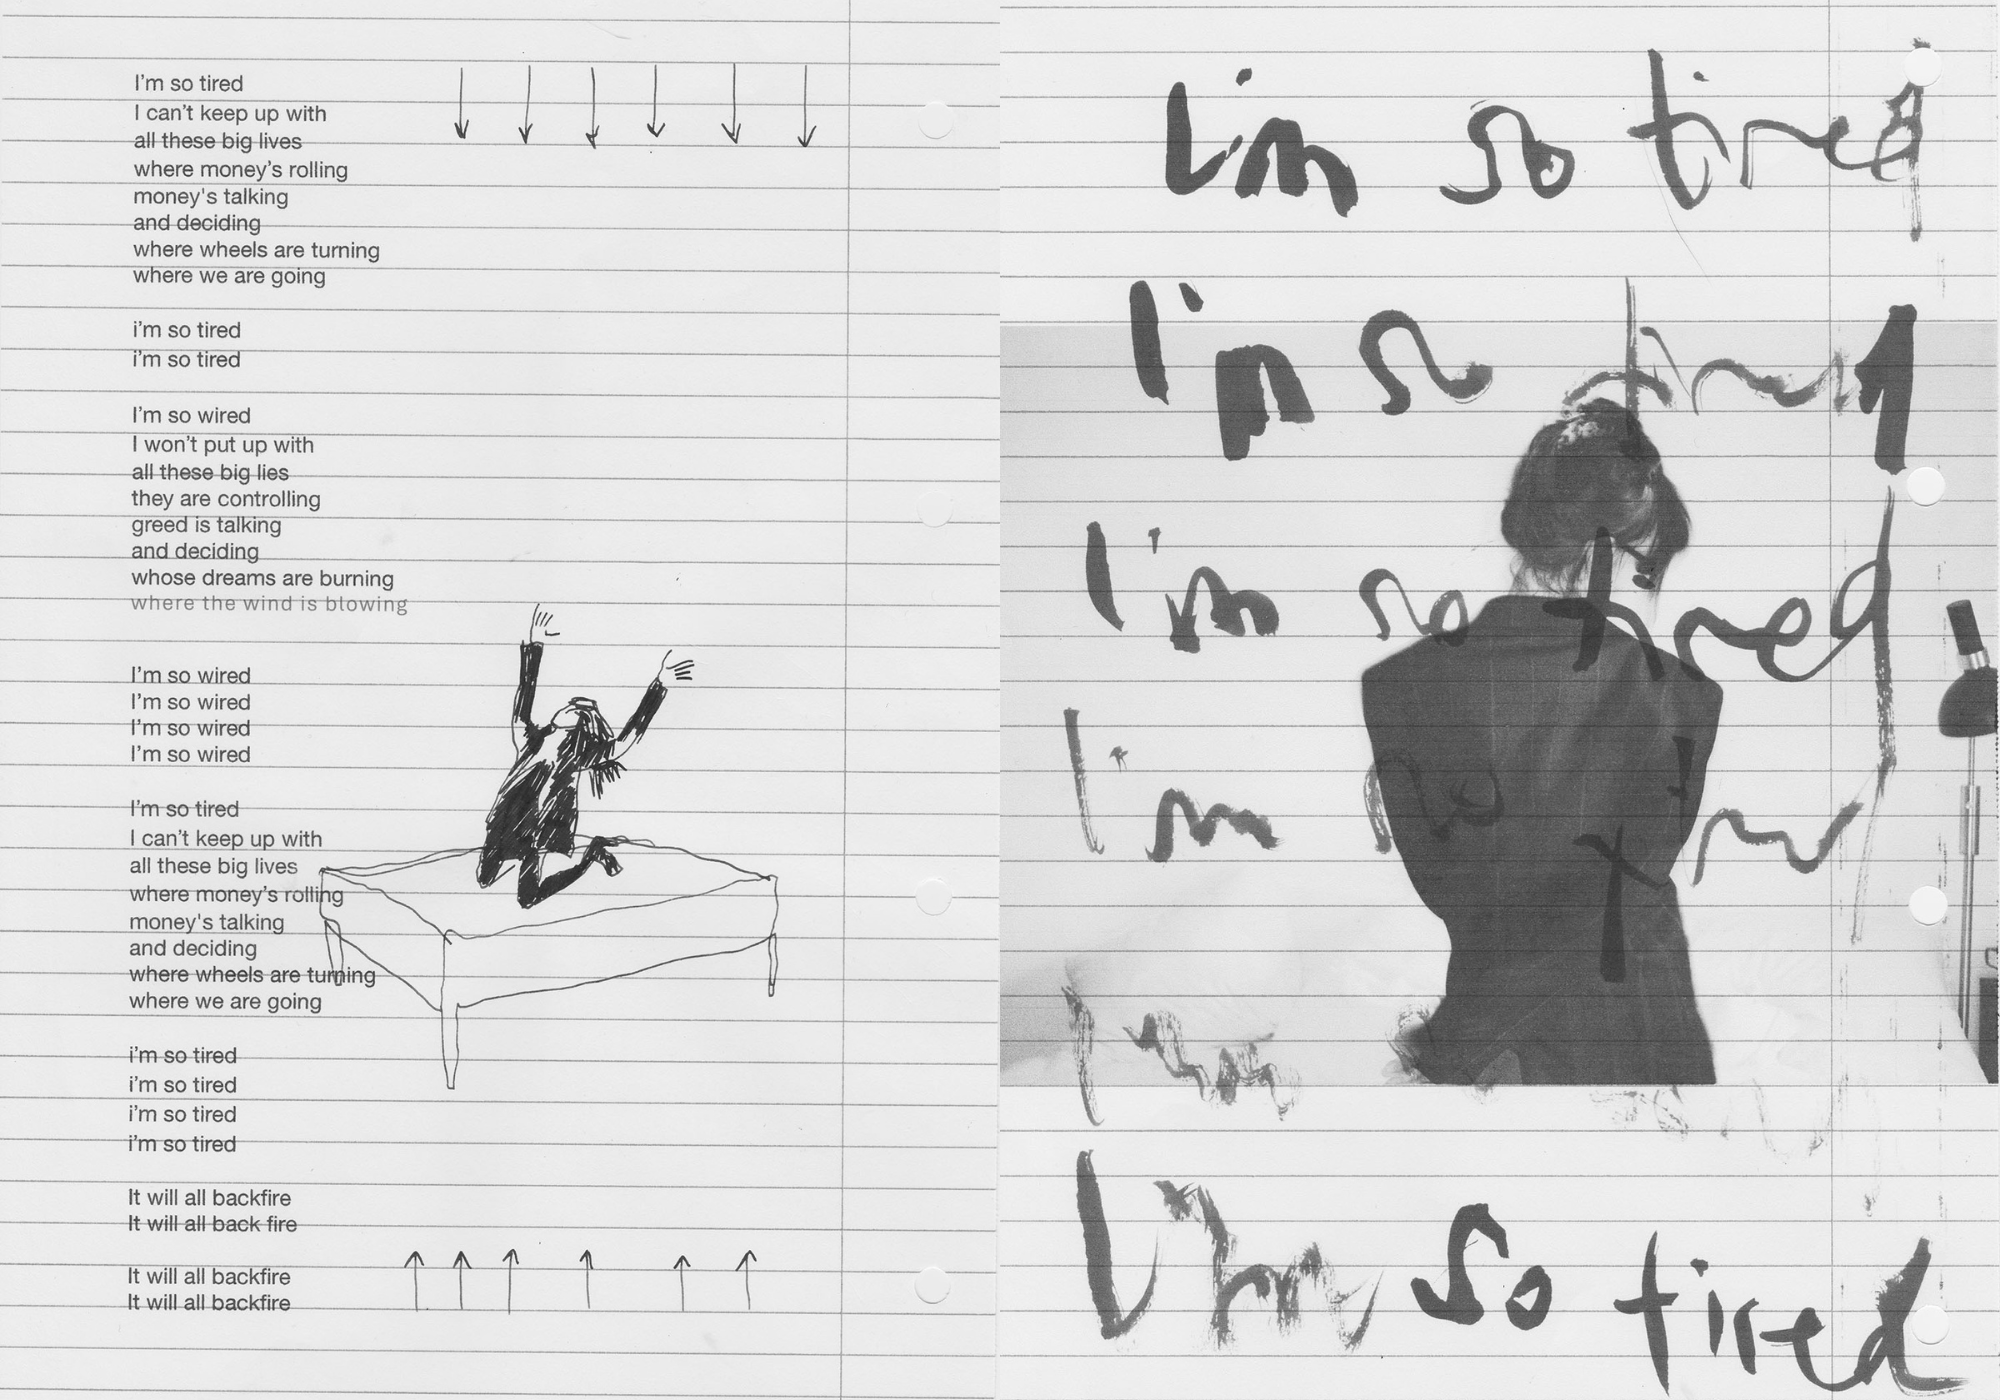 I'm so tired
I can't keep up with
all these big lives
where money's rolling
money's talking
and deciding
where wheels are turning
where we are going
i'm so tired
i'm so tired
I'm so wired
I won't put up with
all these big lies
they are controlling
greed is talking
and deciding
whose dreams are burning
where the wind is blowing
I'm so wired
I'm so wired
I'm so wired
I'm so wired
I'm so tired
I can't keep up with
all these big lives
where money's rolling
money's talking
and deciding
where wheels are turning
where we are going
i'm so tired
i'm so tired
i'm so tired
i'm so tired
It will all backfire
It will all back fire
It will all backfire
It will all backfire
I'm so tired
I'm so tired
I'm so tired
I'm so
I'm
I'm so tired